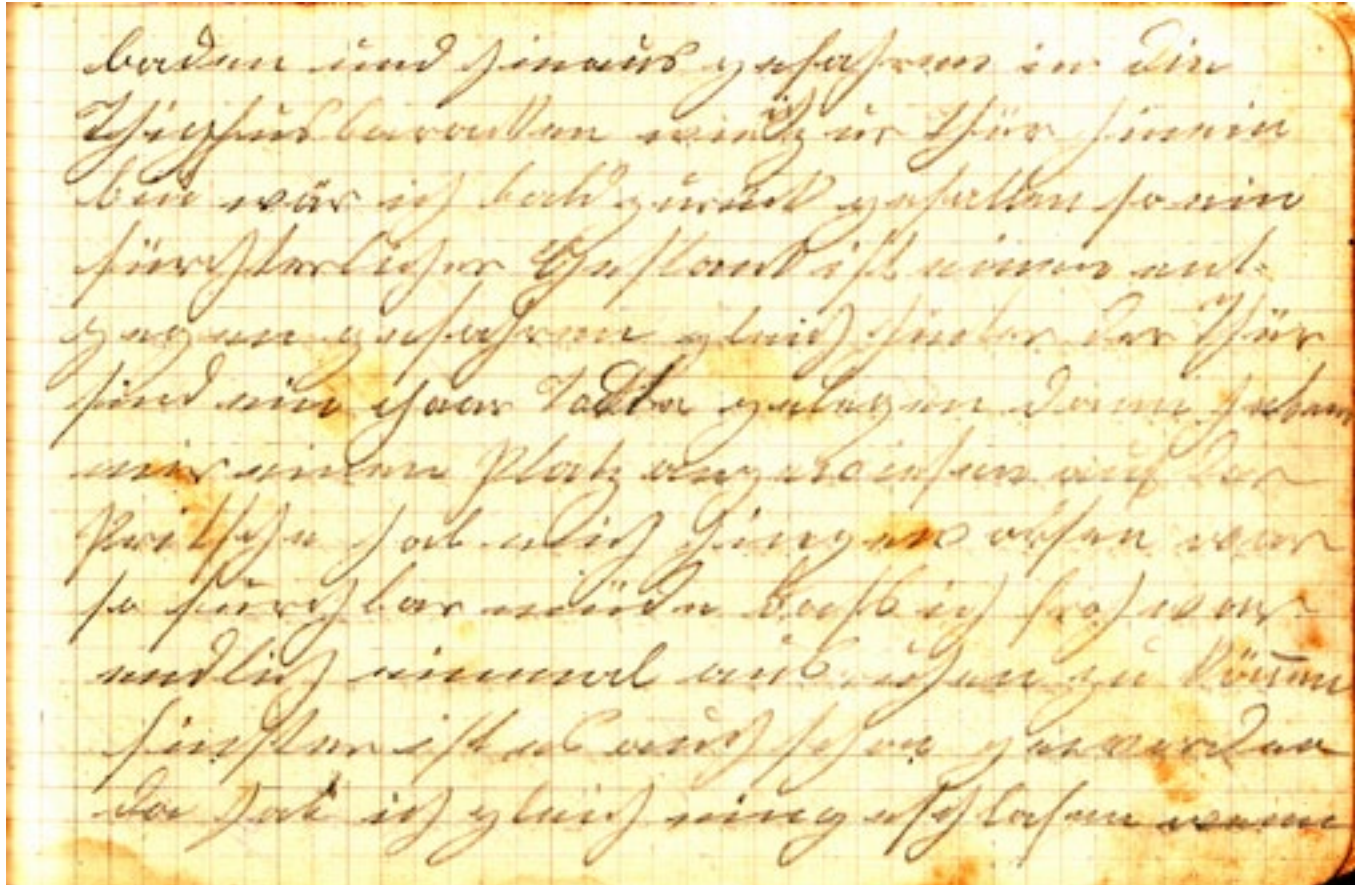 baden und hinaus gefahren in die
Thiphusbaracken wie ich zur Thür hinein
bin wär ich bald zurück gefallen so ein
fürchterlicher Gestank ist einem ent-
gegen gefahren gleich hinter der Thür
sind ein paar Todte gelegen dann haben
mir einen Platz angewiesen auf der
Pritsche hab mich hingeworfen war
so furchbar müde daß ich froh war
endlich einmal ausruhen zu können
finster ist es auch schon geworden
da hab ich gleich eingeschlafen wenn